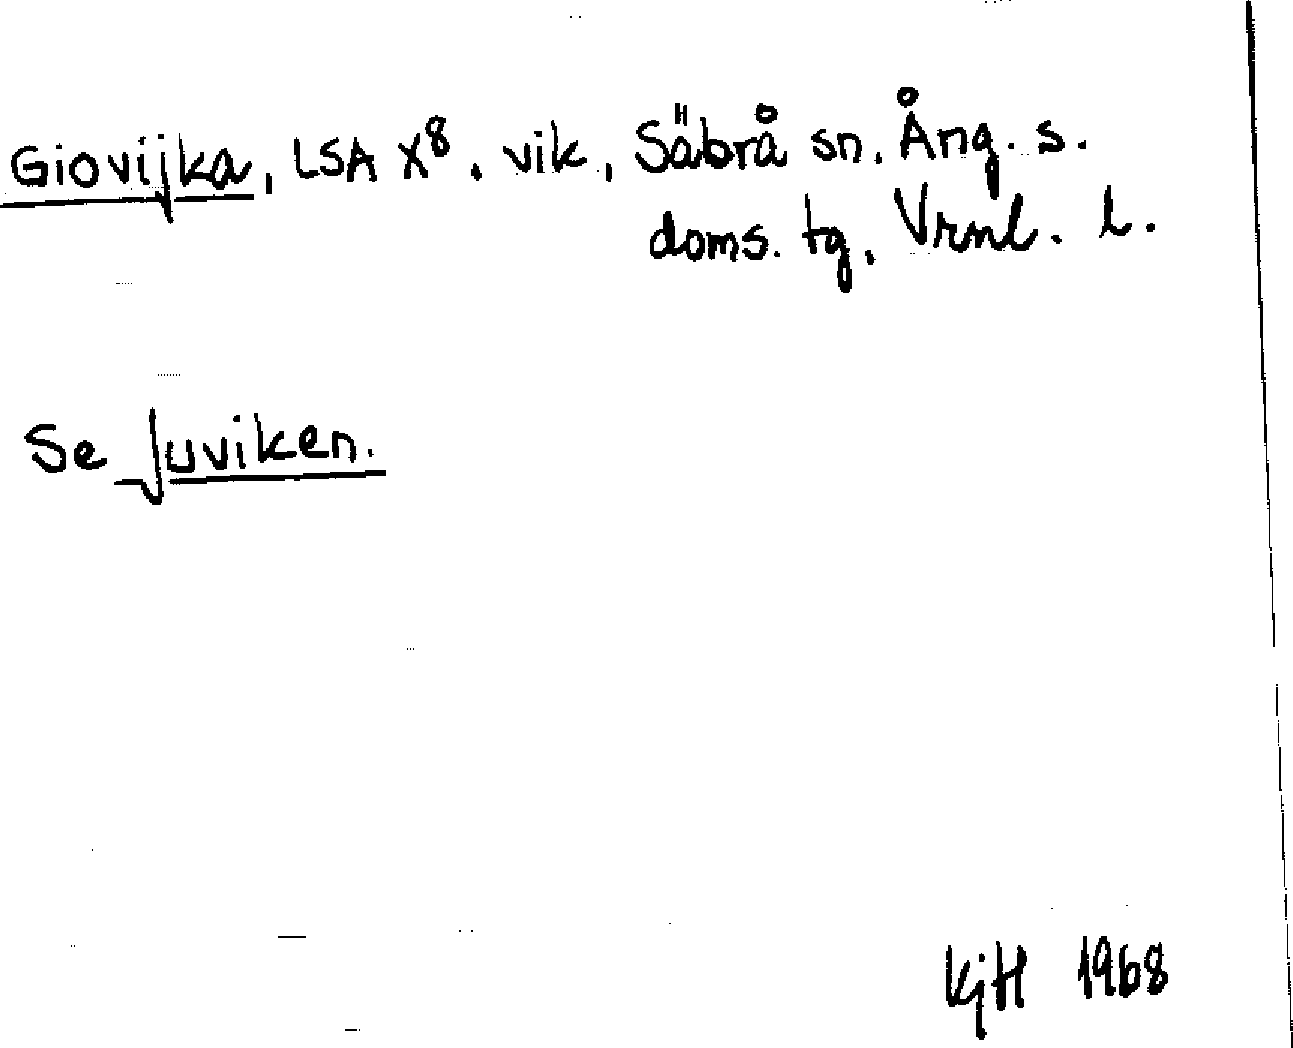 Giovijka, LSA X⁸, vik, Säbrå sn. Ång. s.
doms. tg, Vrnl. l.
Se Juviken.
KjH 1968